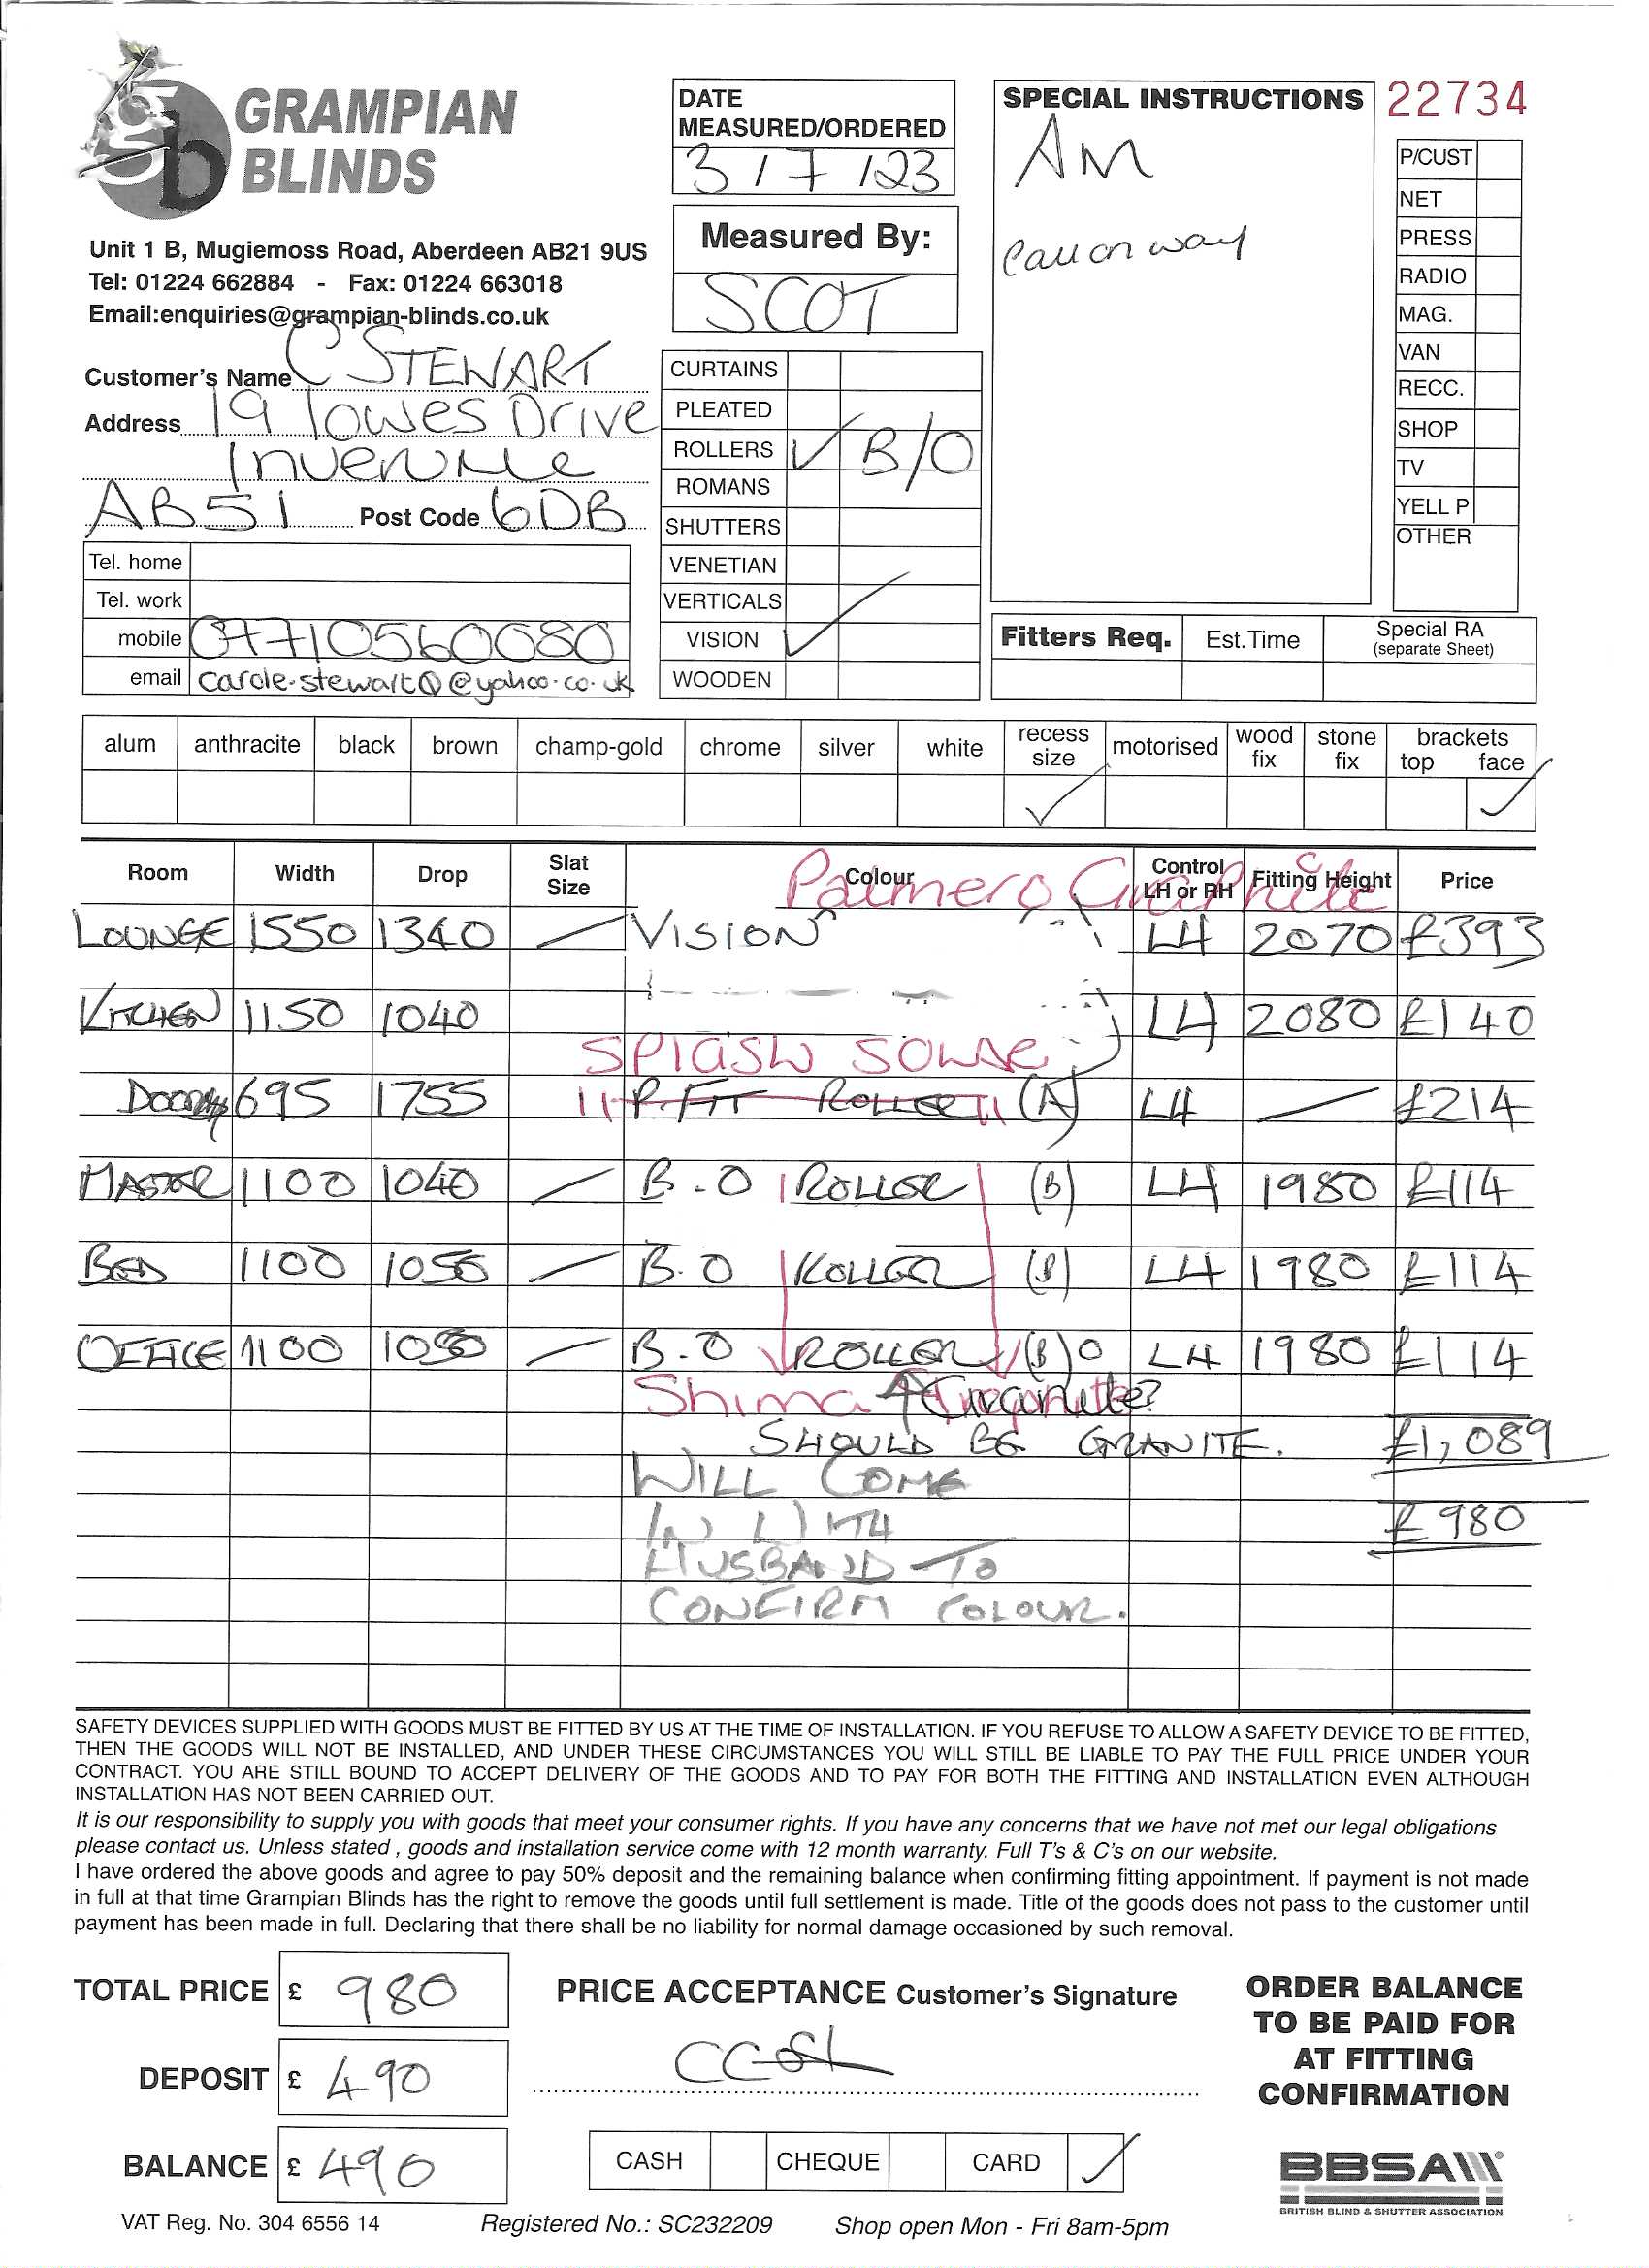 GRAMPIAN
BLINDS
Unit 1 B, Mugiemoss Road, Aberdeen AB21 9US
Tel: 01224 662884 - Fax: 01224 663018
Email:enquiries@grampian-blinds.co.uk
Customer's Name C STEWART
Address 19 Lowes Drive
Inverurie
AB51 Post Code 6DB
Tel. home
Tel. work
mobile 07710560080
email carole.stewart0@yahoo.co.uk
DATE
MEASURED/ORDERED
3/7/23
Measured By:
SCOT
CURTAINS
PLEATED
ROLLERS ✓ B/O
ROMANS
SHUTTERS
VENETIAN
VERTICALS
VISION ✓
WOODEN
SPECIAL INSTRUCTIONS
AM
Call on way
22734
P/CUST
NET
PRESS
RADIO
MAG.
VAN
RECC.
SHOP
TV
YELL P
OTHER
Fitters Req. Est.Time Special RA
(separate Sheet)
alum anthracite black brown champ-gold chrome silver white recess size motorised wood fix stone fix brackets top face
✓ ✓
Room Width Drop Slat Size Colour Control LH or RH Fitting Height Price
Palmero Graphite
LOUNGE 1550 1340 / VISION LH 2070 £393
KITCHEN 1150 1040 LH 2080 £140
SPlash
695 1755 " P. FIT ROLLER " (A) LH / £214
MASTER 1100 1040 / B.O ROLLER (B) LH 1980 £114
BED 1100 / B.O ROLLER (B) LH 1980 £114
OFFICE 1100 / B.O ROLLER (B) LH 1980 £114
Shima
SHOULD BE GRANITE. £1,089
WILL COME
IN WITH £980
HUSBAND TO
CONFIRM COLOUR.
SAFETY DEVICES SUPPLIED WITH GOODS MUST BE FITTED BY US AT THE TIME OF INSTALLATION. IF YOU REFUSE TO ALLOW A SAFETY DEVICE TO BE FITTED,
THEN THE GOODS WILL NOT BE INSTALLED, AND UNDER THESE CIRCUMSTANCES YOU WILL STILL BE LIABLE TO PAY THE FULL PRICE UNDER YOUR
CONTRACT. YOU ARE STILL BOUND TO ACCEPT DELIVERY OF THE GOODS AND TO PAY FOR BOTH THE FITTING AND INSTALLATION EVEN ALTHOUGH
INSTALLATION HAS NOT BEEN CARRIED OUT.
It is our responsibility to supply you with goods that meet your consumer rights. If you have any concerns that we have not met our legal obligations
please contact us. Unless stated , goods and installation service come with 12 month warranty. Full T's & C's on our website.
I have ordered the above goods and agree to pay 50% deposit and the remaining balance when confirming fitting appointment. If payment is not made
in full at that time Grampian Blinds has the right to remove the goods until full settlement is made. Title of the goods does not pass to the customer until
payment has been made in full. Declaring that there shall be no liability for normal damage occasioned by such removal.
TOTAL PRICE £ 980
DEPOSIT £ 490
BALANCE £ 490
PRICE ACCEPTANCE Customer's Signature
CASH CHEQUE CARD ✓
ORDER BALANCE
TO BE PAID FOR
AT FITTING
CONFIRMATION
BBSA
BRITISH BLIND & SHUTTER ASSOCIATION
VAT Reg. No. 304 6556 14 Registered No.: SC232209 Shop open Mon - Fri 8am-5pm